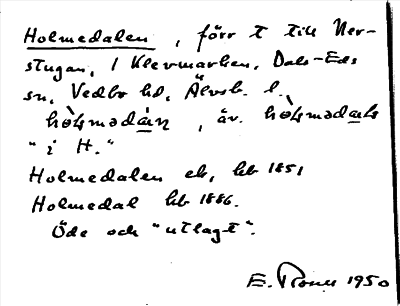 Holmedalen, förr t till Ner-
stugan, 1 Klevmarken, Dals-Eds
sn, Vedbo hd, Älvsb. l.
, äv.
"i H."
Holmedalen ek, hb 1851
Holmedal hb 1886.
Öde och "utlagt".
E. 1950